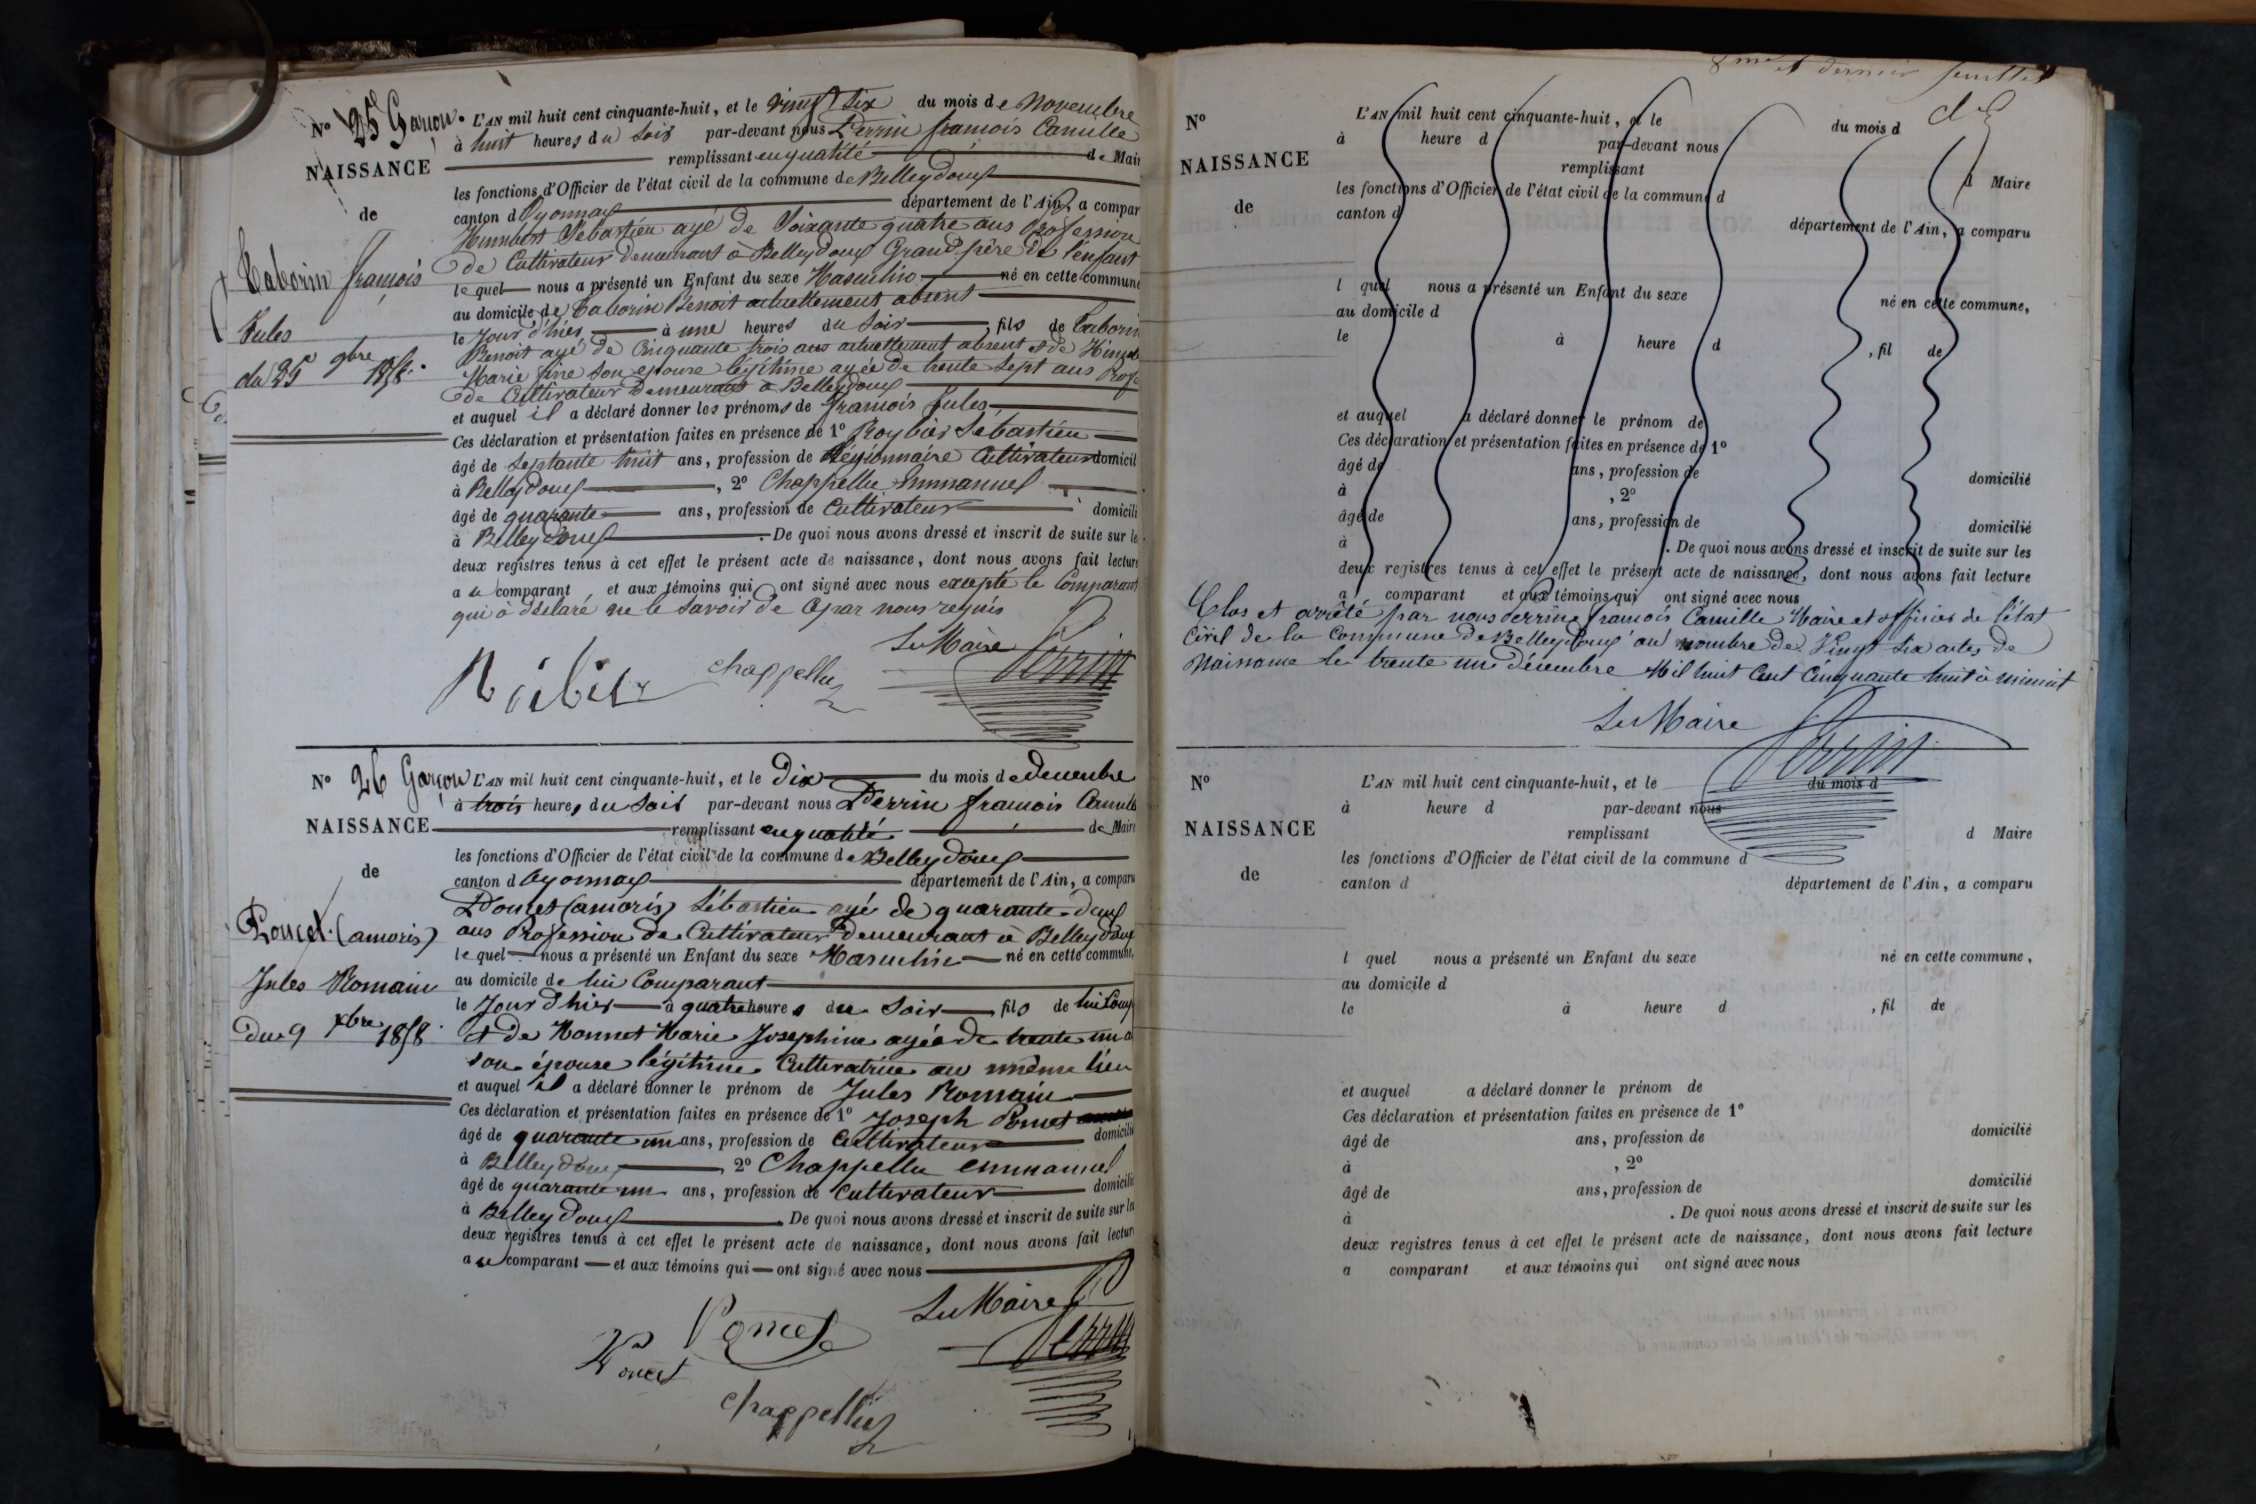 N° 25 Garçon. L'AN mil huit cent cinquante-huit, et le vingt six du mois de Novembre
à huit heures du soir par-devant nous Perrin françois Camille
remplissant en qualité de Mair
NAISSANCE
les fonctions d'Officier de l'état civil de la commune de Belleydoux
de
canton d'Oyonnax département de l'Ain, a compar
Humbert Sébastien agé de Soixante quatre ans Profession
de Cultivateur demeurant à Belleydoux Grand père de l'enfant
Taborin françois
le quel nous a présenté un Enfant du sexe Masculin né en cette commune
au domicile de Taborin Benoit actuellement absent
Jules
le Jour d'hier à une heures du Soir, fils de Taborin
Benoit agé de Cinquante trois ans actuellement absent et de
du 25 9bre 1858.
Marie fine son épouse légitime agée de trente sept ans Profe
de Cultivateur demeurant à Belleydoux
et auquel il a déclaré donner les prénoms de françois Jules
Ces déclaration et présentation faites en présence de 1° Roybier Sébastien
âgé de septante huit ans, profession de Légionnaire Cultivateur domicil
à Belleydoux, 2° Chappellu Emmanuel
âgé de quarante ans, profession de Cultivateur domicili
à Belleydoux. De quoi nous avons dressé et inscrit de suite sur le
deux registres tenus à cet effet le présent acte de naissance, dont nous avons fait lecture
a u comparant, et aux témoins qui ont signé avec nous excepté le Comparant
qui à déclaré ne le savoir de ce par nous requis
Le Maire
Perrin
chappellu
N° 26 Garçon L'AN mil huit cent cinquante-huit, et le Dix du mois de decembre
à trois heures du soir par-devant nous Perrin françois Camille
NAISSANCE remplissant en qualité de Maire
les fonctions d'Officier de l'état civil de la commune de Belleydoux
de
canton d'Oyonnax département de l'Ain, a comparu
Poncet (amoris) Sébastien agé de quarante deux
Poncet (amoris)
ans Profession de Cultivateur demeurant à Belleydoux
le quel nous a présenté un Enfant du sexe Masculin né en cette commune,
Jules Romain
au domicile de lui Comparant
le Jour d'hier à quatre heures du Soir, fils de lui Comp
du 9 xbre 1858.
et de Monnet Marie Josephine agée de trente un a
son épouse légitime Cultivatrice au même lieu
et auquel il a déclaré donner le prénom de Jules Romain
Ces déclaration et présentation faites en présence de 1° Joseph Poncet
âgé de quarante un ans, profession de Cultivateur domicilié
à Belleydoux, 2° Chappellu emmanuel
âgé de quarante un ans, profession de Cultivateur domicilié
à Belleydoux. De quoi nous avons dressé et inscrit de suite sur les
deux registres tenus à cet effet le présent acte de naissance, dont nous avons fait lecture
a u comparant et aux témoins qui ont signé avec nous
Le Maire
Poncet
Perrin
Poncet
chappellu
8me et dernier feuillet
N°
L'AN mil huit cent cinquante-huit, et le du mois d
à heure d par-devant nous
NAISSANCE
remplissant d Maire
les fonctions d'Officier de l'état civil de la commune d
de
canton d département de l'Ain, a comparu
l quel nous a présenté un Enfant du sexe né en cette commune,
au domicile d
le à heure d , fil de
et auquel a déclaré donner le prénom de
Ces déclaration et présentation faites en présence de 1°
âgé de ans, profession de domicilié
à , 2°
âgé de ans, profession de domicilié
à . De quoi nous avons dressé et inscrit de suite sur les
deux registres tenus à cet effet le présent acte de naissance, dont nous avons fait lecture
a comparant et aux témoins qui ont signé avec nous
Clos et arrêté par nous Perrin françois Camille Maire et officier de l'état
civil de la Commune de Belleydoux au nombre de Vingt six actes de
Naissance le trente un décembre Mil huit Cent Cinquante huit à minuit
Le Maire
Perrin
N°
L'AN mil huit cent cinquante-huit, et le du mois d
à heure d par-devant nous
NAISSANCE
remplissant d Maire
les fonctions d'Officier de l'état civil de la commune d
de
canton d département de l'Ain, a comparu
l quel nous a présenté un Enfant du sexe né en cette commune,
au domicile d
le à heure d , fil de
et auquel a déclaré donner le prénom de
Ces déclaration et présentation faites en présence de 1°
âgé de ans, profession de domicilié
à , 2°
âgé de ans, profession de domicilié
à . De quoi nous avons dressé et inscrit de suite sur les
deux registres tenus à cet effet le présent acte de naissance, dont nous avons fait lecture
a comparant et aux témoins qui ont signé avec nous